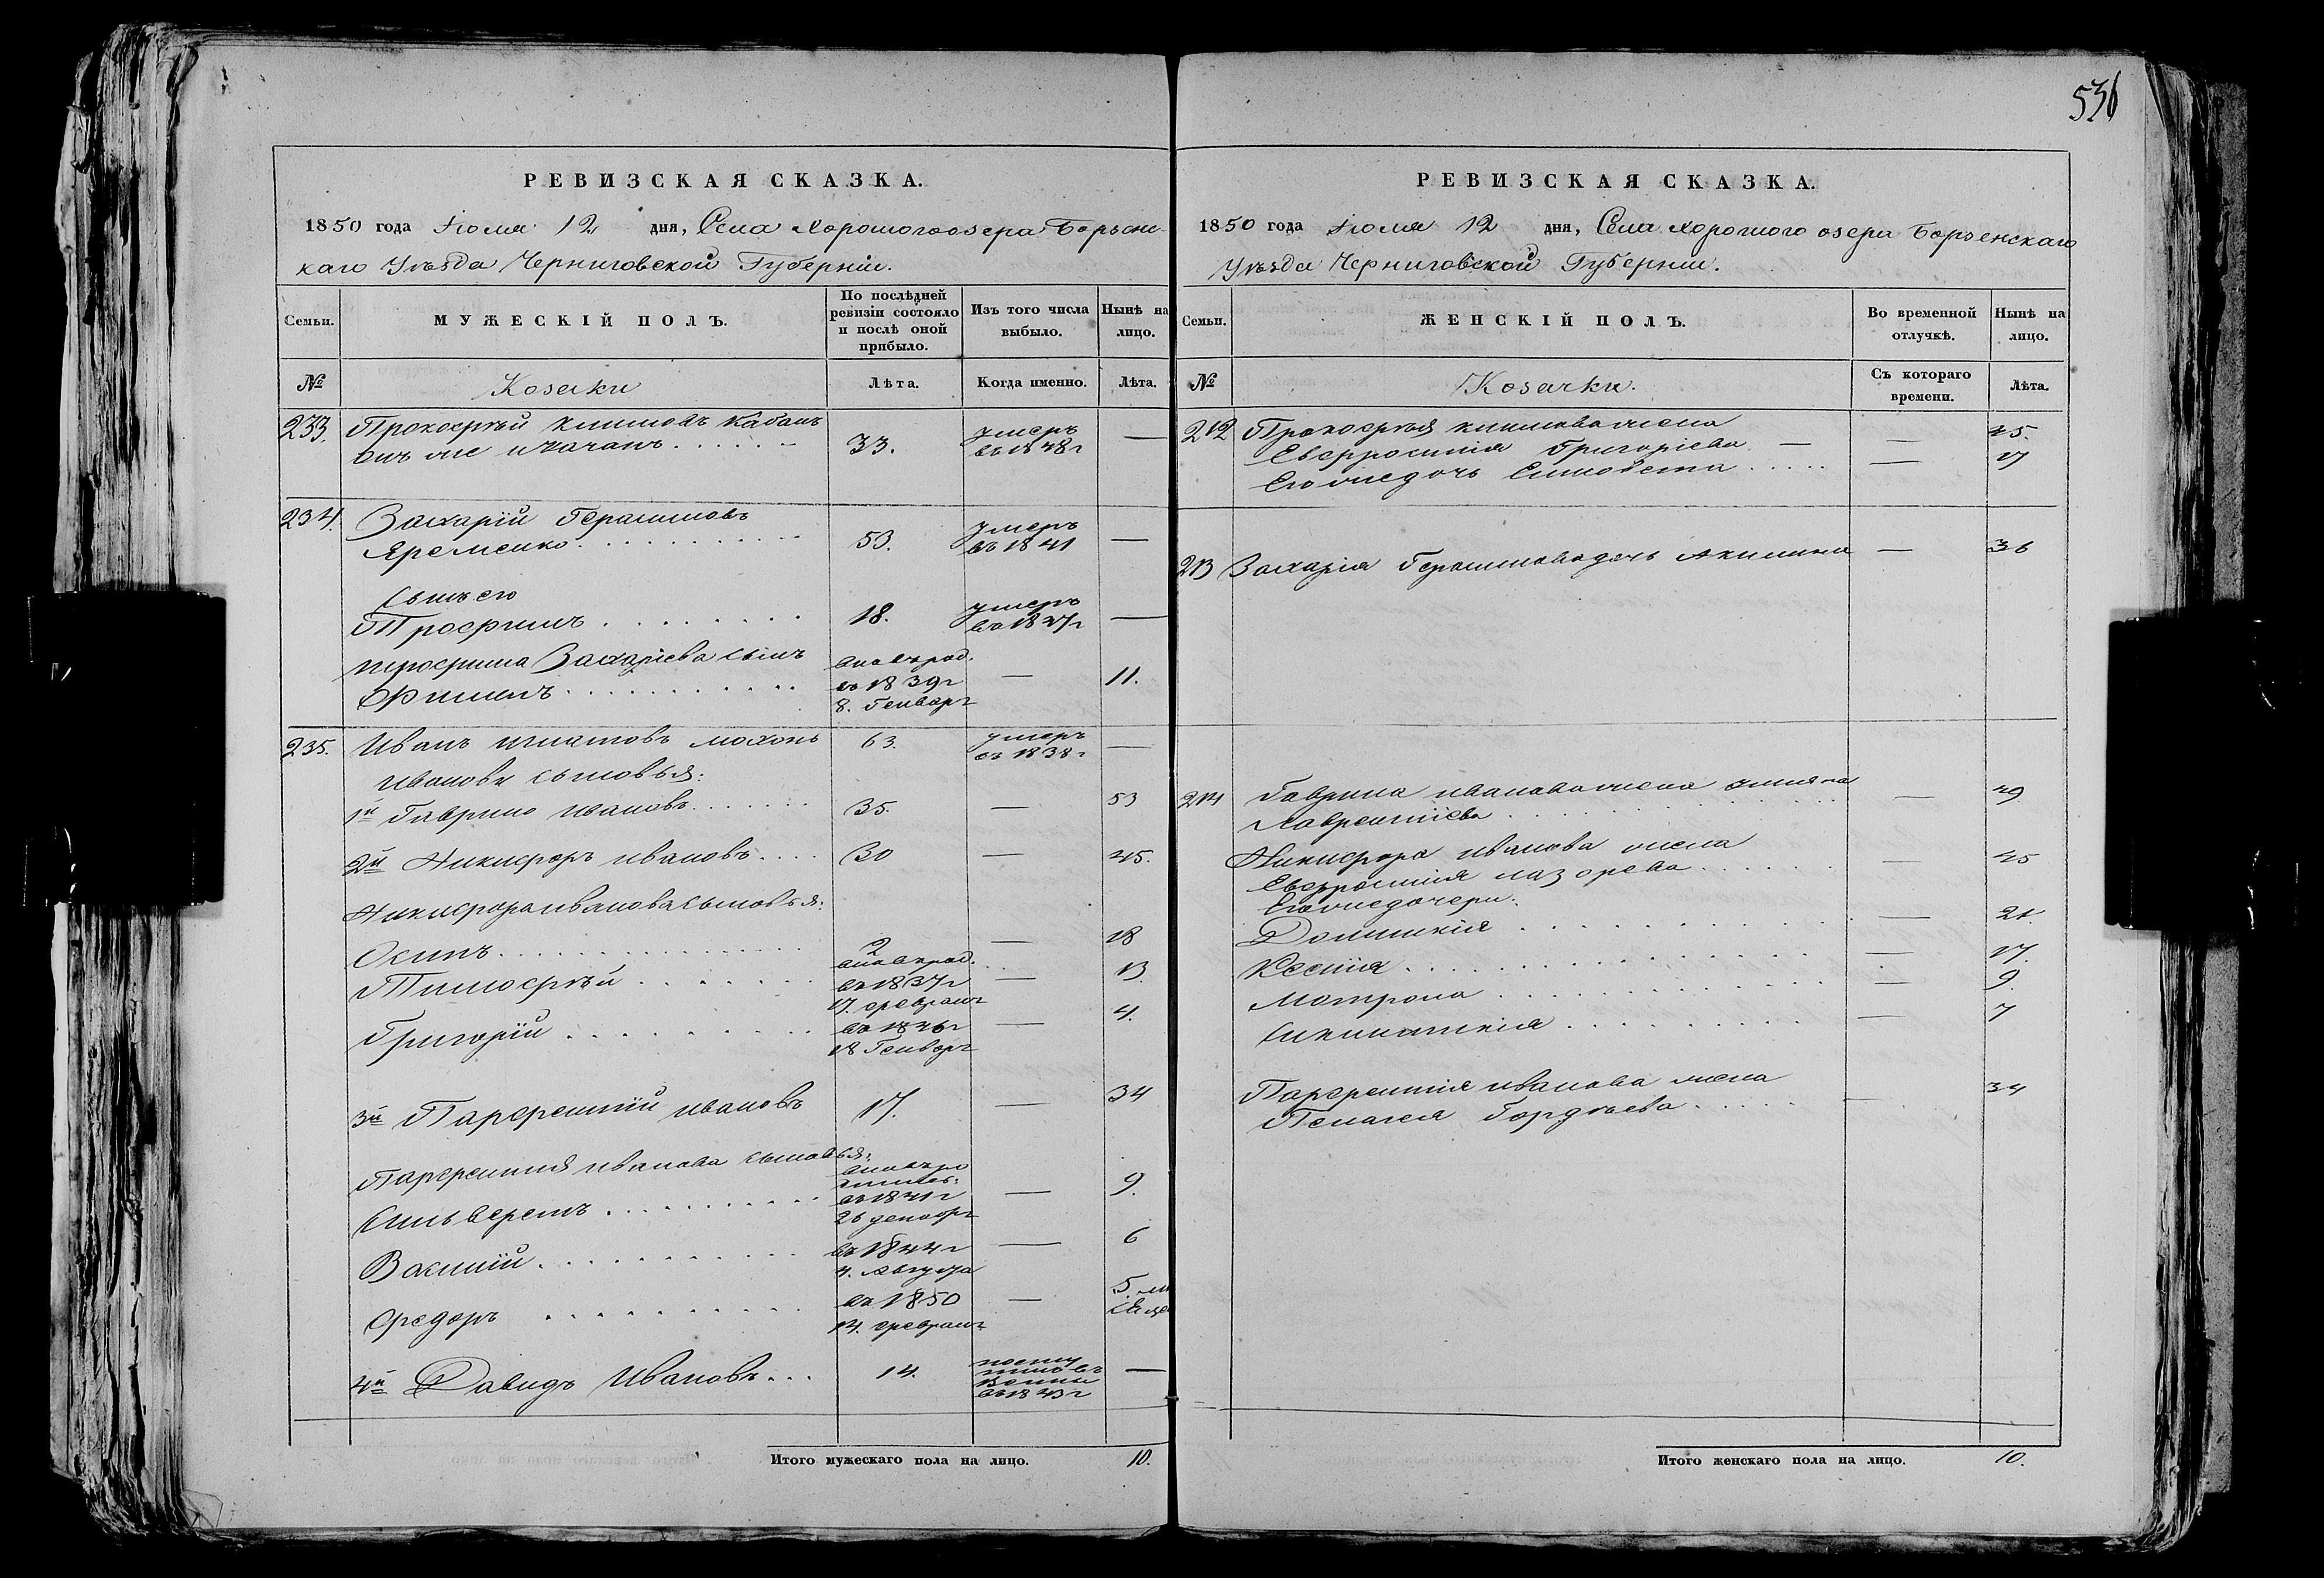 536
РЕВИЗСКАЯ СКАЗКА.
1850 года Іюля 12 дня, Села Хорошогоозера Борзен-
каго Уѣзда Черниговской Губерніи.
Семьи.
МУЖЕСКІЙ ПОЛЪ.
По послѣдней
ревизіи состояло
и послѣ оной
прибыло.
Изъ того числа
выбыло.
Нынѣ на
лицо.
№
Козаки
Лѣта.
Когда именно.
Лѣта.
233. Прокофѣй Климовъ Кабанъ
онъ же и Качанъ 33. умеръ въ 1848 г —
234. Захарій Герасимовъ
Яременко 53. умеръ въ 1841 —
Сынъ его
Трофимъ 18. умеръ —
Трофима Захаріева сынъ
Филипъ вновь род. въ 1839 г 8. Генвар — 11.
235. Иванъ Игнатовъ Мохонь 63. умеръ въ 1838 г —
Ивановы сыновья:
1й Гаврило Ивановъ 35. — 53
2й Никифоръ Ивановъ 30 — 45.
Никифора Иванова сыновья:
Осипъ 2 — 18
Тимофѣй вновь род. въ 1837 г 17. Феврал — 13.
Григорій въ 1846 г 18 Генвар — 4.
3й Парфентій Ивановъ 17. — 34
Парфентія Иванова сыновья:
Сильверстъ въ 1841 г 26 декабр — 9.
Василій въ 1844 г 4. Августа — 6
Федоръ въ 1850 14. Феврал — 5. м
4й Давидъ Ивановъ 14. въ 1843 г —
Итого мужескаго пола на лицо. 10.
РЕВИЗСКАЯ СКАЗКА.
1850 года Іюля 12 дня, Села Хорошого озера Борзенскаго
Уѣзда Черниговской Губерніи.
Семьи.
ЖЕНСКІЙ ПОЛЪ.
Во временной
отлучкѣ.
Нынѣ на
лицо.
№
Козачки.
Съ котораго
времени.
Лѣта.
212 Прокофѣя Климова жена
Евфросинія Григоріева — — 45.
Его же дочь —
213 Захарія Герасимова дочь Акилина — 36
214 Гаврила Иванова жена Ульяна
Лаврентіева — 49
Никифора Иванова жена
Евфросинія Лазорева — 45
Его же дочери:
Домникія — 21.
Ксенія — 17.
Матрона — 9.
— 7
Парфентія Иванова жена
Пелагея Гордѣева — 34
Итого женскаго пола на лицо. 10.